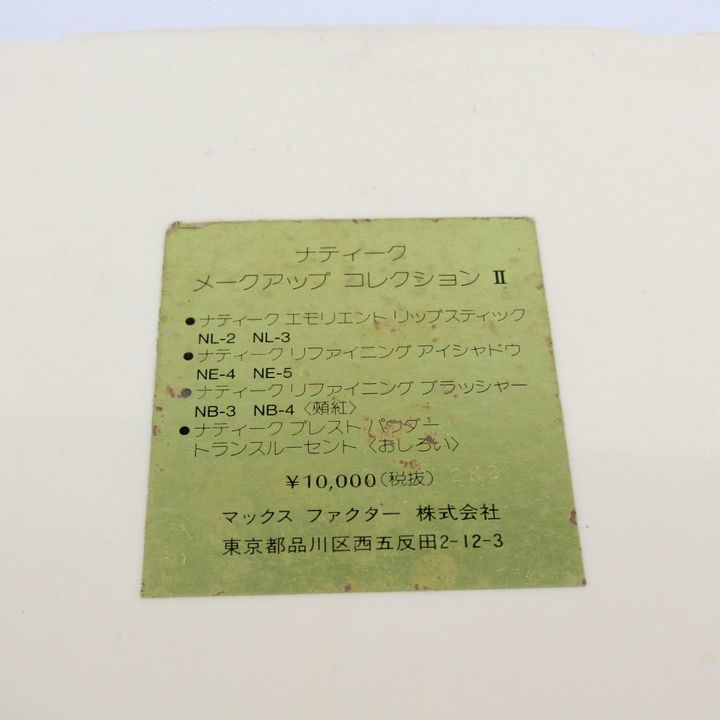 ナティーク
メークアップ コレクション Ⅱ
●ナティーク エモリエント リップスティック
NL-2 NL-3
●ナティーク リファイニング アイシャドウ
NE-4 NE-5
●ナティーク リファイニング ブラッシャー
NB-3 NB-4〈頬紅〉
●ナティーク プレスト パウダー
トランスルーセント〈おしろい〉
¥10,000(税抜)
マックス ファクター 株式会社
東京都品川区西五反田2-12-3